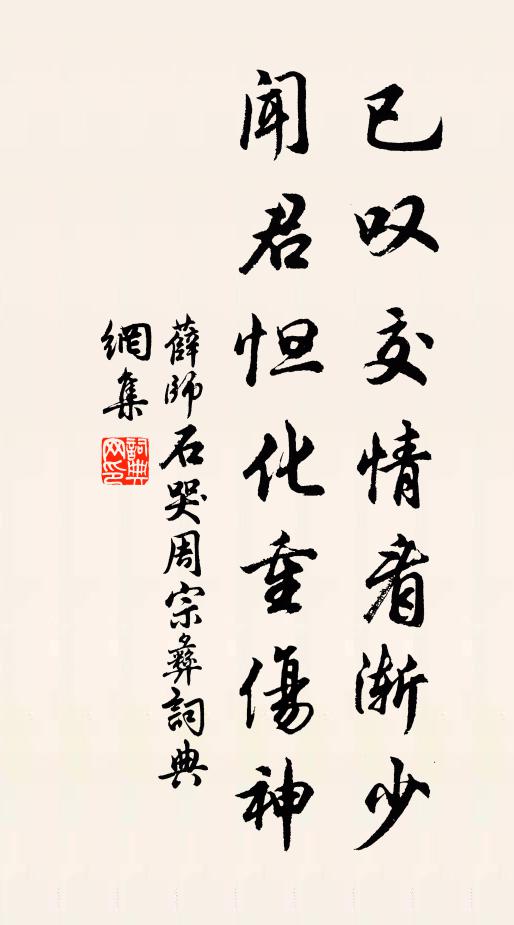 已叹交情看渐少
闻君怛化重傷神
薛師石哭周宗彝詞典
網集
詞典网印